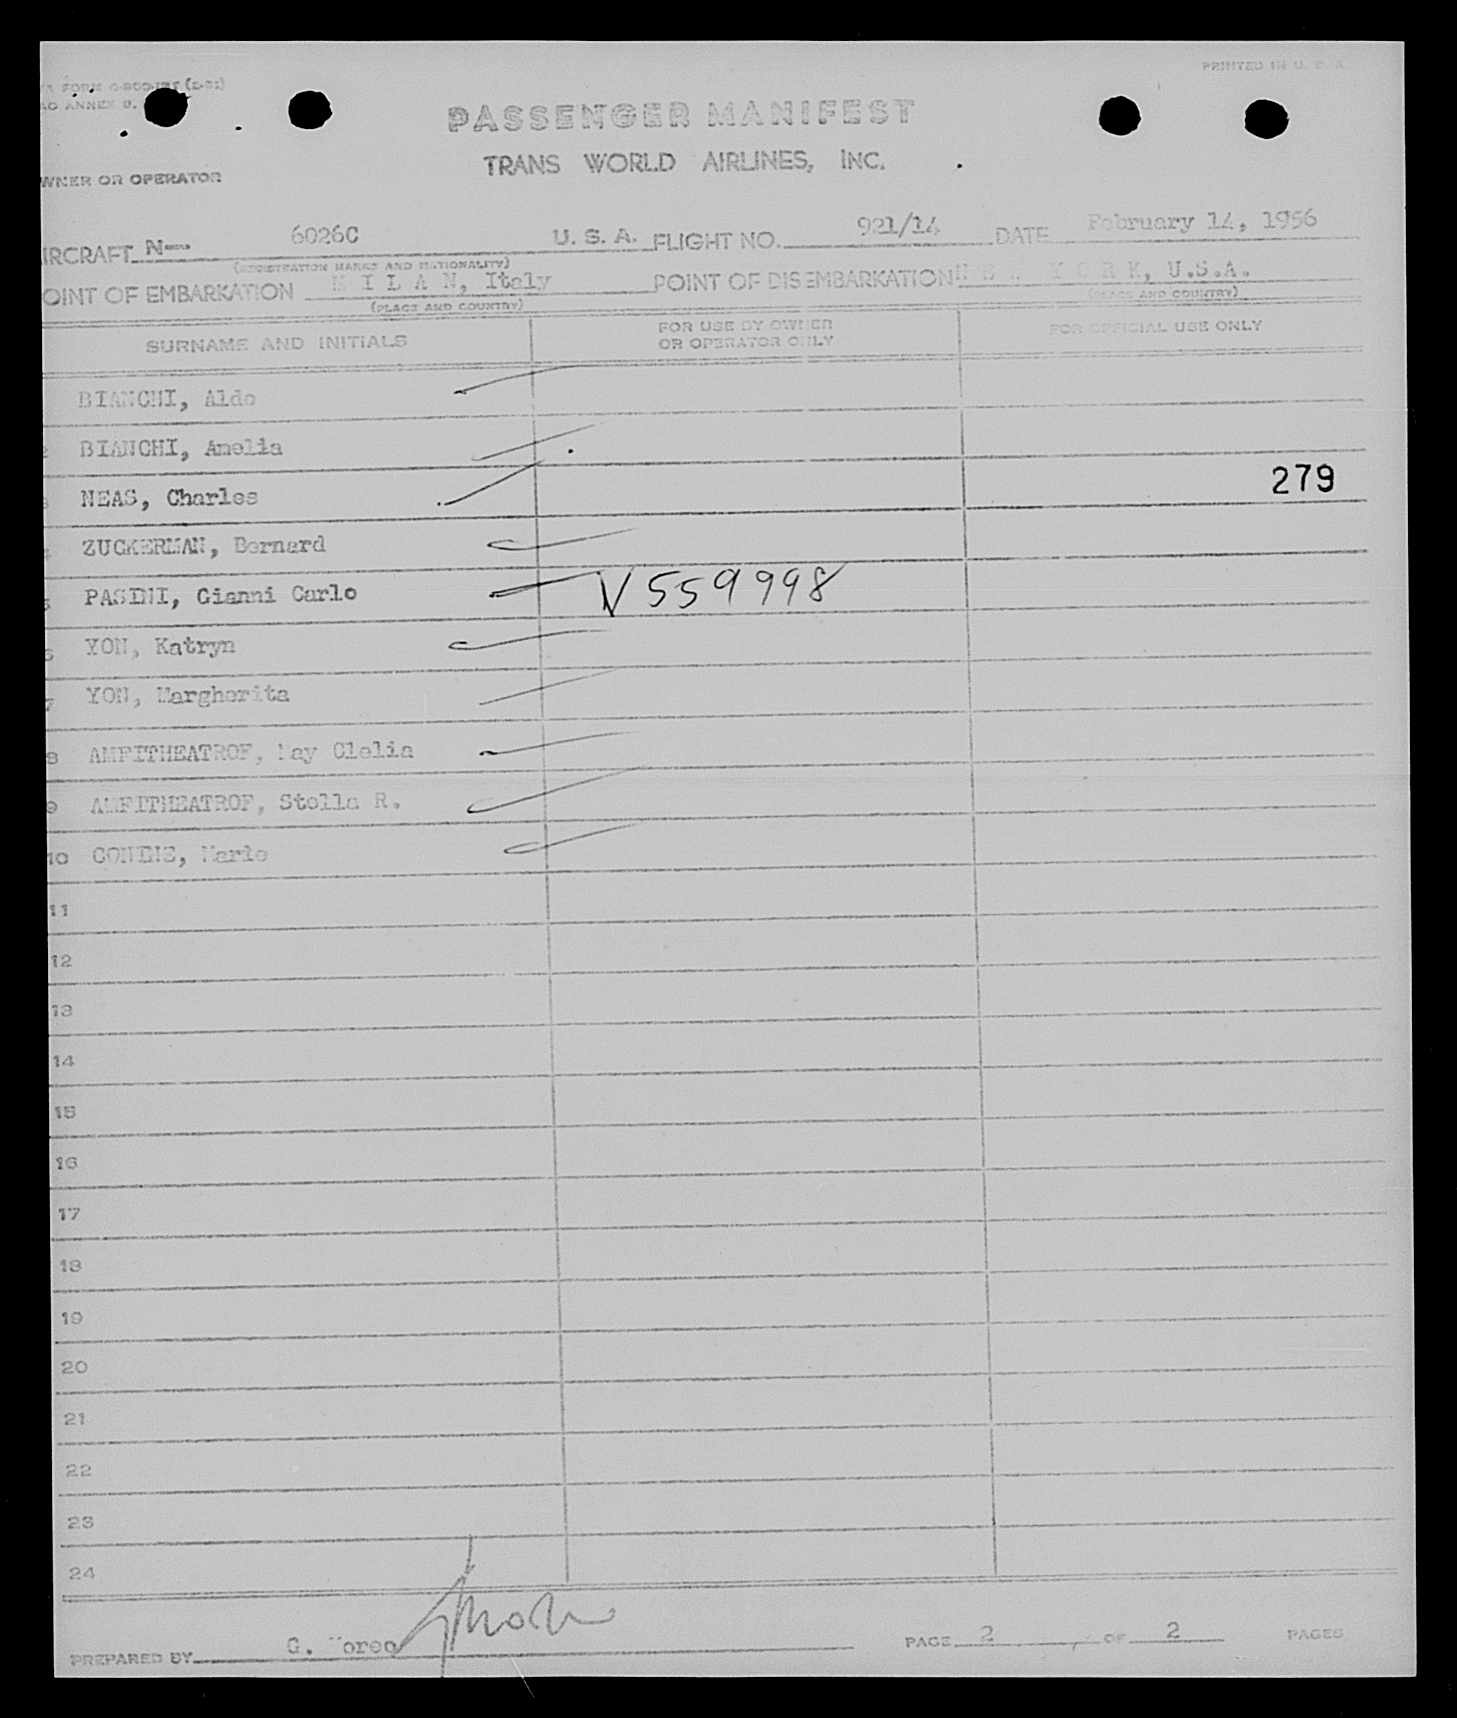 PRINTED IN U. S. A.
FORM
ANNEX 9.
PASSENGER MANIFEST
TRANS WORLD AIRLINES, INC.
WNER OR OPERATOR
IRCRAFT N— 6026C U. S. A. FLIGHT NO. 921/14 DATE February 14, 1956
(REGISTRATION MARKS AND NATIONALITY)
OINT OF EMBARKATION M I L A N, Italy POINT OF DISEMBARKATION N E W Y O R K, U.S.A.
(PLACE AND COUNTRY) (PLACE AND COUNTRY)
SURNAME AND INITIALS FOR USE BY OWNER OR OPERATOR ONLY FOR OFFICIAL USE ONLY
BIANCHI, Aldo
2 BIANCHI, Amelia
3 NEAS, Charles 279
4 ZUCKERMAN, Bernard
5 PASINI, Gianni Carlo V 559998
6 YON, Katryn
7 YON, Margherita
8 AMFITHEATROF, May Clelia
9 AMFITHEATROF, Stella R.
10
11
12
13
14
15
16
17
18
19
20
21
22
23
24
PREPARED BY G. PAGE 2 OF 2 PAGES